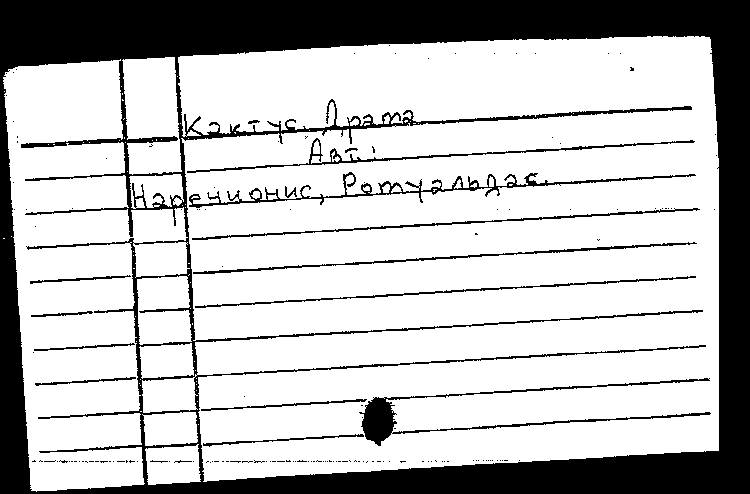 Кактус. Драма
Авт:
Наречионис, Ромуальдас.